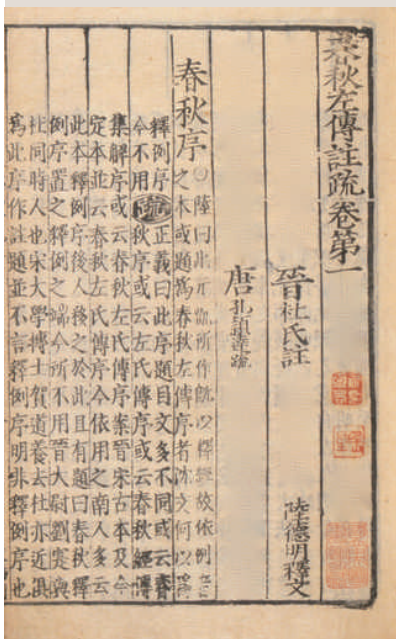 春秋左傳註疏卷第一
晉杜氏註
陸德明釋文
唐孔穎達疏
春秋序
○陸曰此元凱所作既以釋經故依例音
之本或題爲春秋左傳序者沈文何以爲
釋例序
今不用
疏
正義曰此序題目文多不同或云春
秋序或云左氏傳序或云春秋經傳
集解序或云春秋左氏傳序案晉宋古本及今
定本並云春秋左氏傳序今依用之南人多云
此本釋例序後人移之於此且有題曰春秋釋
例序置之釋例之端今所不用晉大尉劉寔與
杜同時人也宋大學博士賀道養去杜亦近俱
爲此序作註題並不言釋例序明非釋例序也